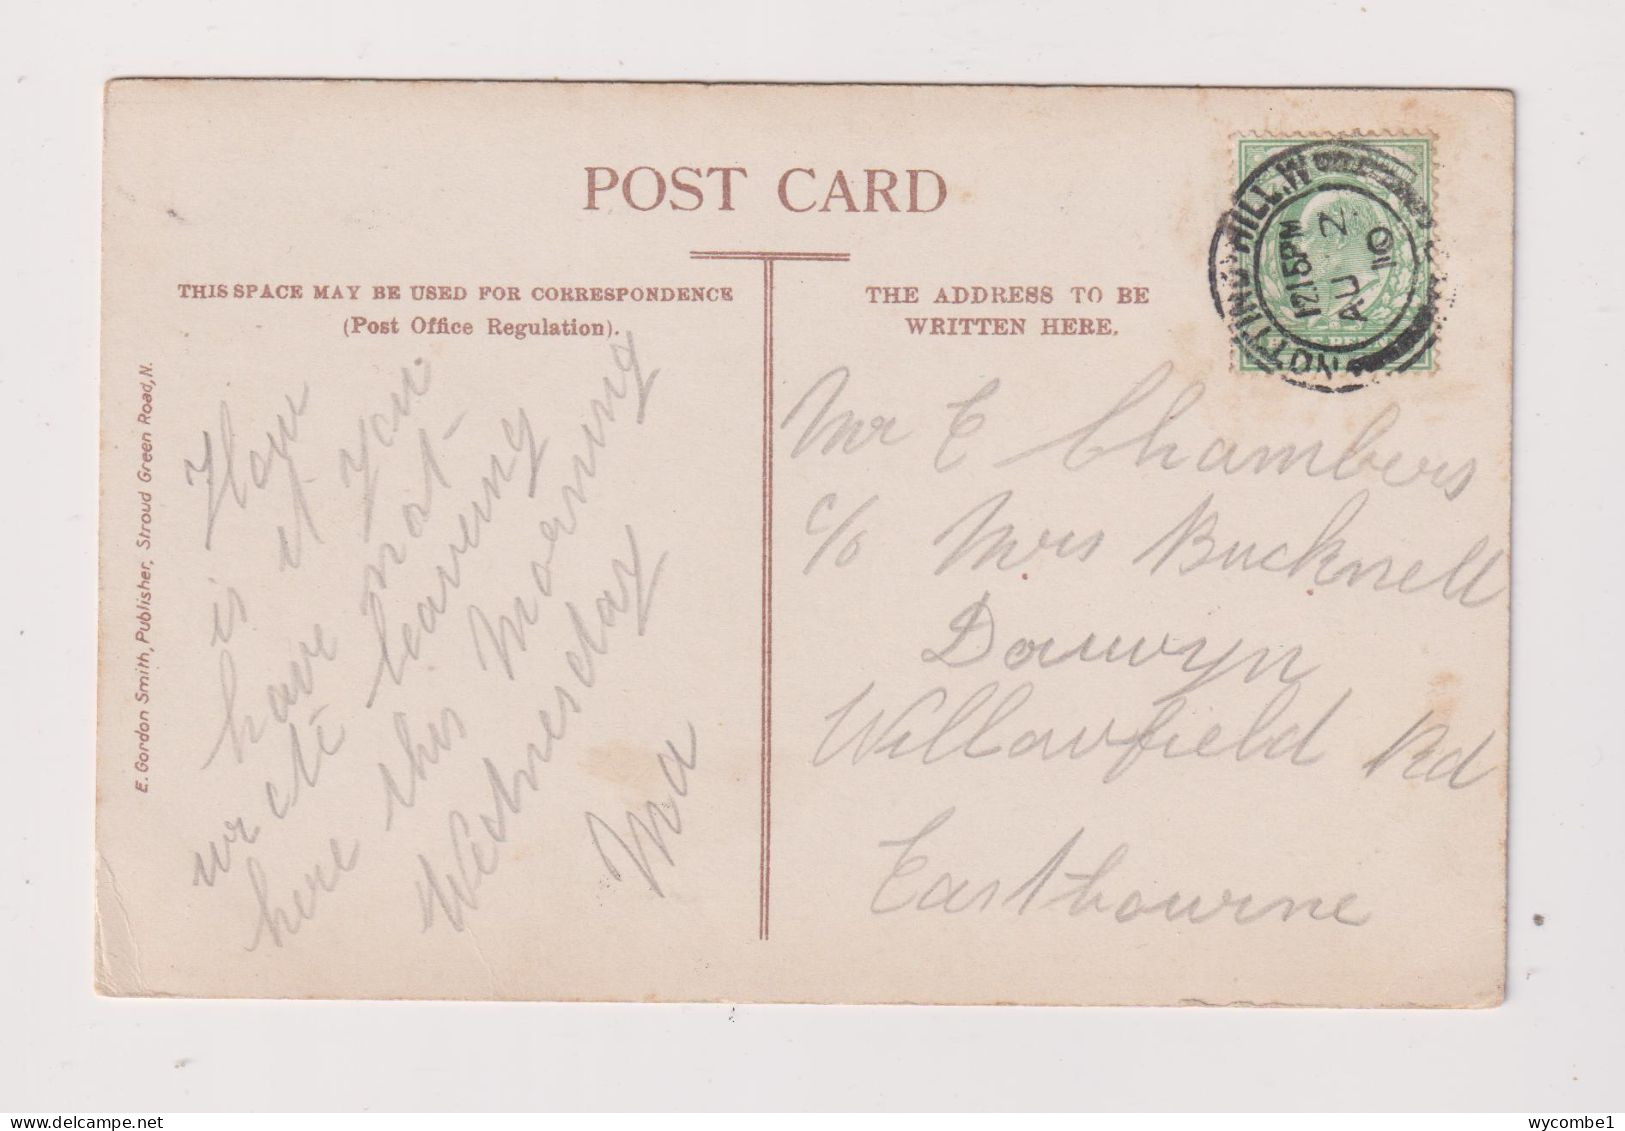 POST CARD
THIS SPACE MAY BE USED FOR CORRESPONDENCE
(Post Office Regulation).
THE ADDRESS TO BE
WRITTEN HERE.
E. Gordon Smith, Publisher, Stroud Green Road, N.
How
is it you
have not
write leaving
here this Morning
Wednesday
Ma
NOTTING HILL. W
12 15 PM
AU 2
10
Mr E Chambers
c/o Mrs Bucknell
Dawwyn
Willowfield Rd
Eastbourne
wycombe1